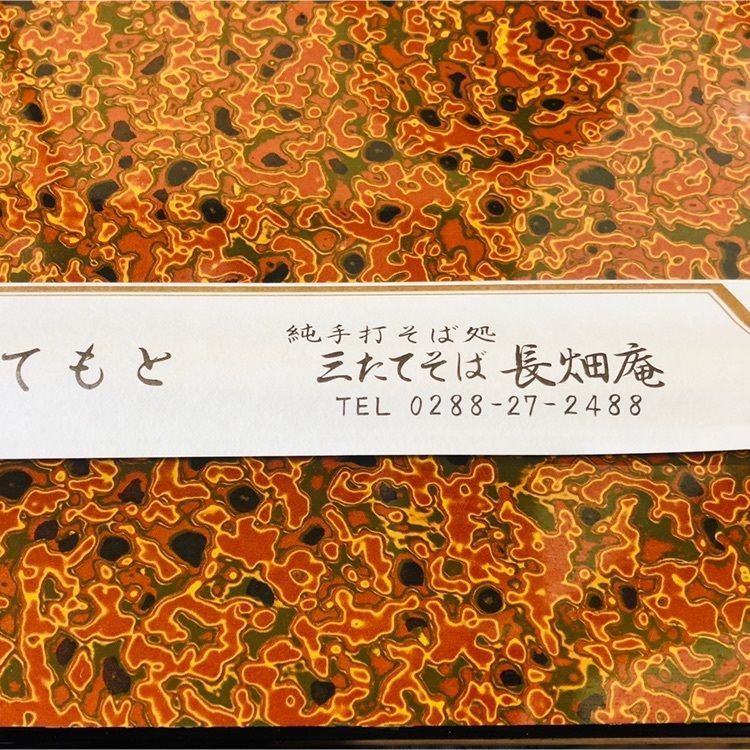 てもと
純手打そば処
三たてそば 長畑庵
TEL 0288-27-2488